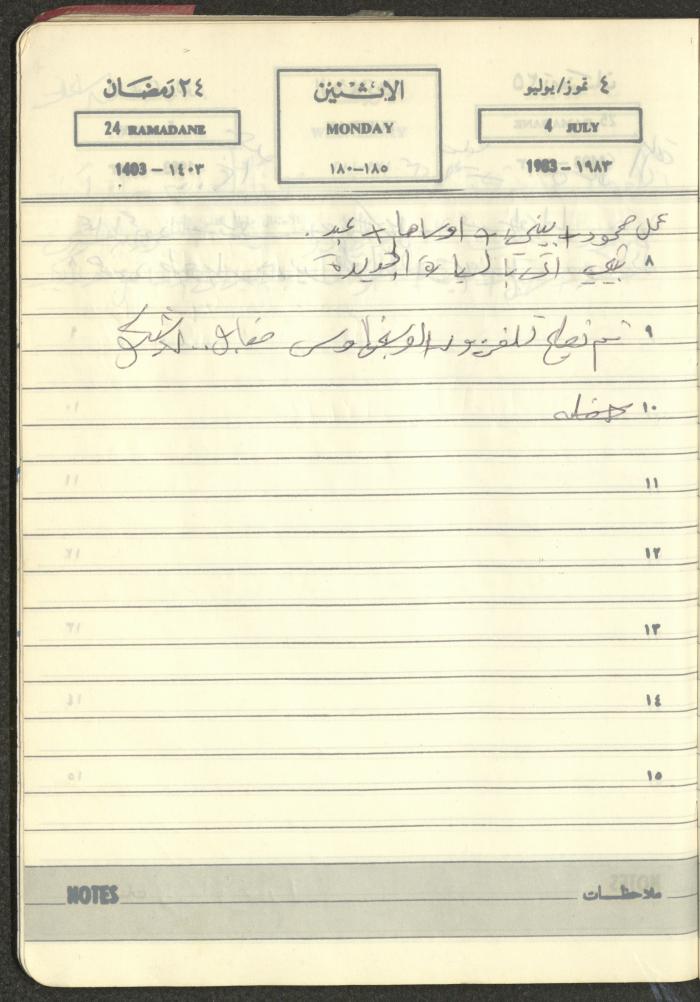 ٢٤ رمضان
الإثنين
٤ تموز/يوليو
24 RAMADANE
MONDAY
4 JULY
1403 – ١٤٠٣
١٨٠–١٨٥
1983 – ١٩٨٣
عمل محمود + بيني + اوساما + عبد.
٨ أتى بالسيارة الجديدة
٩ تم تصليح تلفزيون
١٠ حفله
١١
١٢
١٣
١٤
١٥
NOTES
ملاحظات